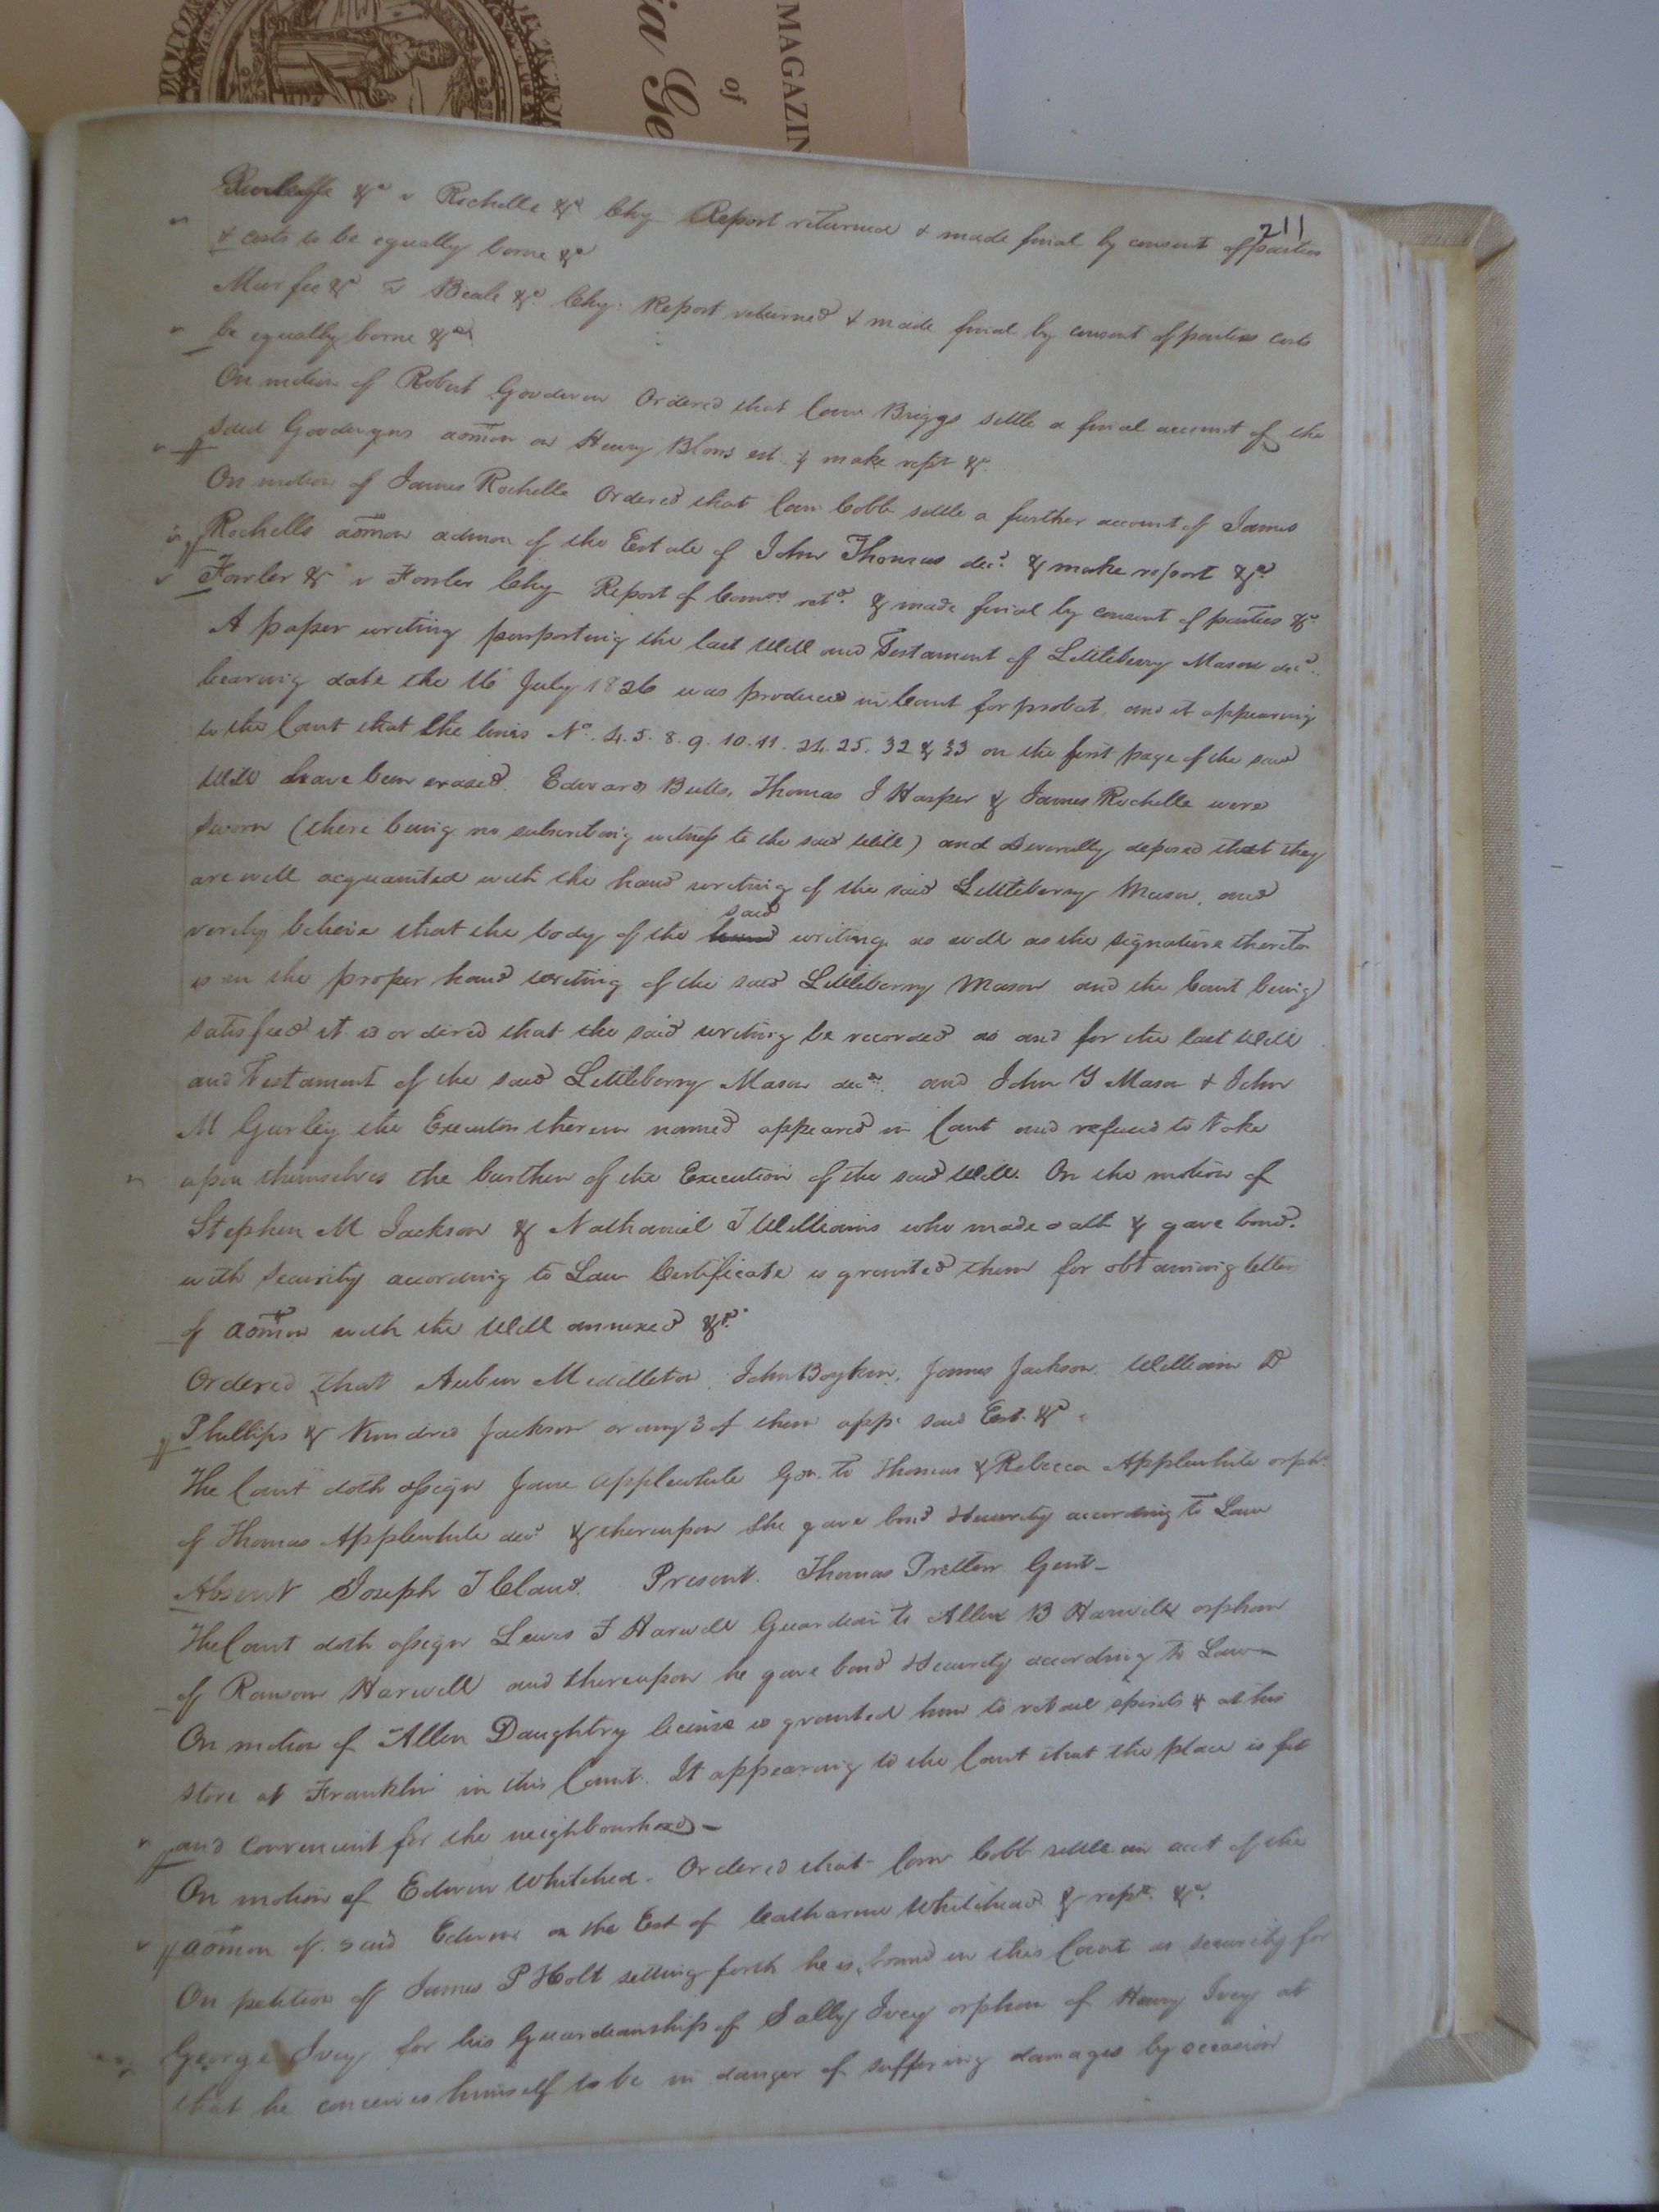 MAGAZIN
of
ia Ge
211
&c v Rochelle &c Chy Report returned & made final by consent of parties
& costs to be equally borne &c
Murfee &c v Beale &c. Chy: Report returned & made final by consent of parties costs
be equally borne &c
On motion of Robert Goodwin Ordered that Com Briggs settle a final account of the
said Goodwyns admon on Henry Blows est. & make rept &c.
On motion of James Rochelle Ordered that Com Cobb settle a further account of James
Rochells admon admon of the Estate of John Thomas decd. & make report &c.
Fowler &c v Fowler Chy Report of Comrs. retd. & made final by consent of parties &c
A paper writing purporting the last Will and Testament of Littleberry Mason decd.
bearing date the 16 July 1826 was produced in Court for probat, and it appearing
to the Court that the lines No. 4. 5. 8. 9. 10. 11. 24. 25. 32 & 33 on the first page of the said
Will have been erased. Edward Butts, Thomas J Harper & James Rochelle were
sworn (there being no subscribing witness to the said Will) and Severally deposed that they
are well acquainted with the hand writing of the said Littleberry Mason, and
verily believe that the body of the said writing as well as the signature thereto
is in the proper hand writing of the said Littleberry Mason and the Court being
satisfied it is ordered that the said writing be recorded as and for the last Will
and Testament of the said Littleberry Mason decd. and John Y Mason & John
M Gurley the Executors therein named appeared in Court and refused to take
upon themselves the burthen of the Execution of the said Will. On the motion of
Stephen M Jackson & Nathaniel T Williams who made oath & gave bond.
with security according to Law Certificate is granted them for obtaining letters
of admon with the Will annexed &c.
Ordered that Middleton, John Boykin, James Jackson, William D
Phillips & Kindred Jackson or any 3 of them appr said Est. &c
The Court doth assign Jane Applewhite Gdn. to Thomas & Rebecca Applewhite orphs
of Thomas Applewhite decd & thereupon she gave bond & security according to Law
Absent Joseph T Claud. Present. Thomas Pretlow Gent-
The Court doth assign Lewis F Harwell Guardian to Allen B Harwell orphan
of Ransom Harwell and thereupon he gave bond & security according to Law
On motion of Allen Daughtry license is granted him to retail spirits & at his
store at Franklin in this Count. It appearing to the Court that the place is fit
and convenient for the neighbourhood -
On motion of Edwin Whitehed. Ordered that Com Cobb settle an acct of the
admon of said Edwin on the Est of Catharine Whitehead & rept. &c.
On petition of James P Holt setting forth he is bound in this Court as security for
George Ivey for his Guardianship of Sally Ivey orphan of Henry Ivey at
that he conceives himself to be in danger of suffering damages by occasion